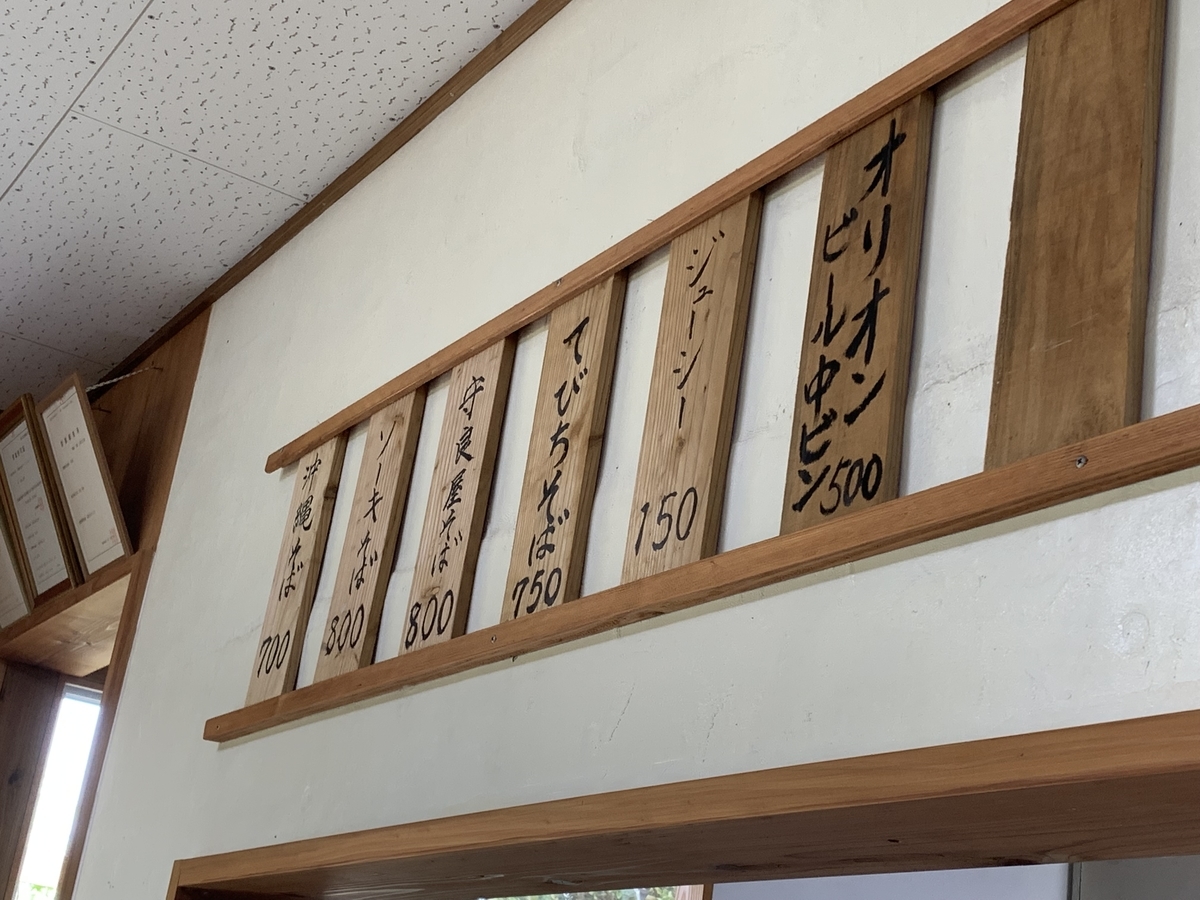 沖縄そば 700
ソーキそば 800
守良屋そば 800
てびちそば 750
ジューシー 150
オリオン
ビール中ビン 500